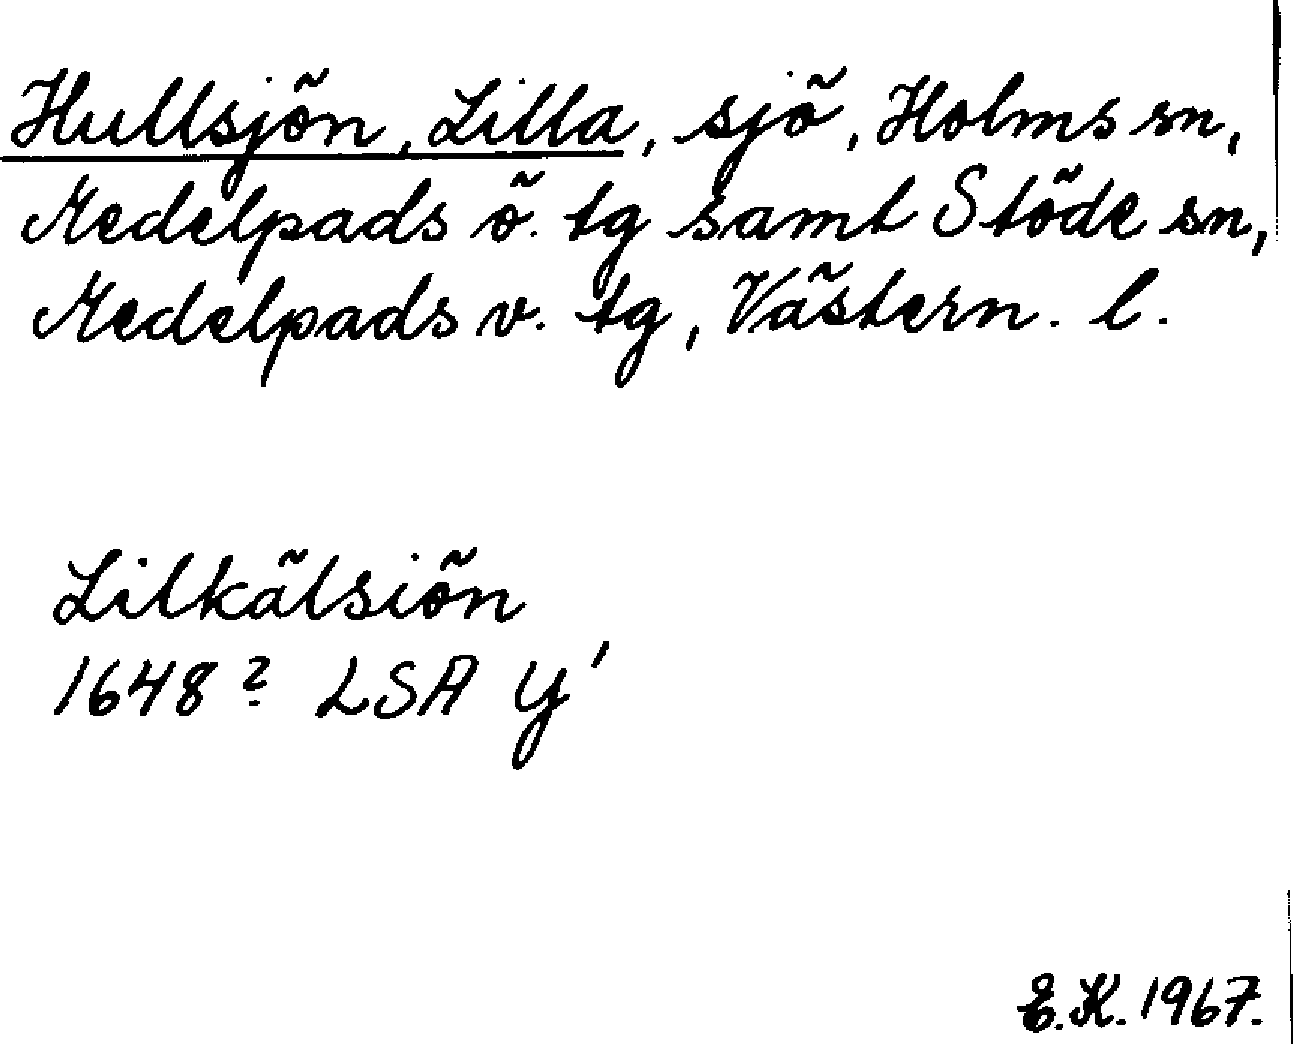 Hullsjön, Lilla, sjö, Holms sn,
Medelpads ö. tg samt Stöde sn,
Medelpads v. tg, Västern. l.
Lilkälsiön
1648? LSA Y'
E.K. 1967.